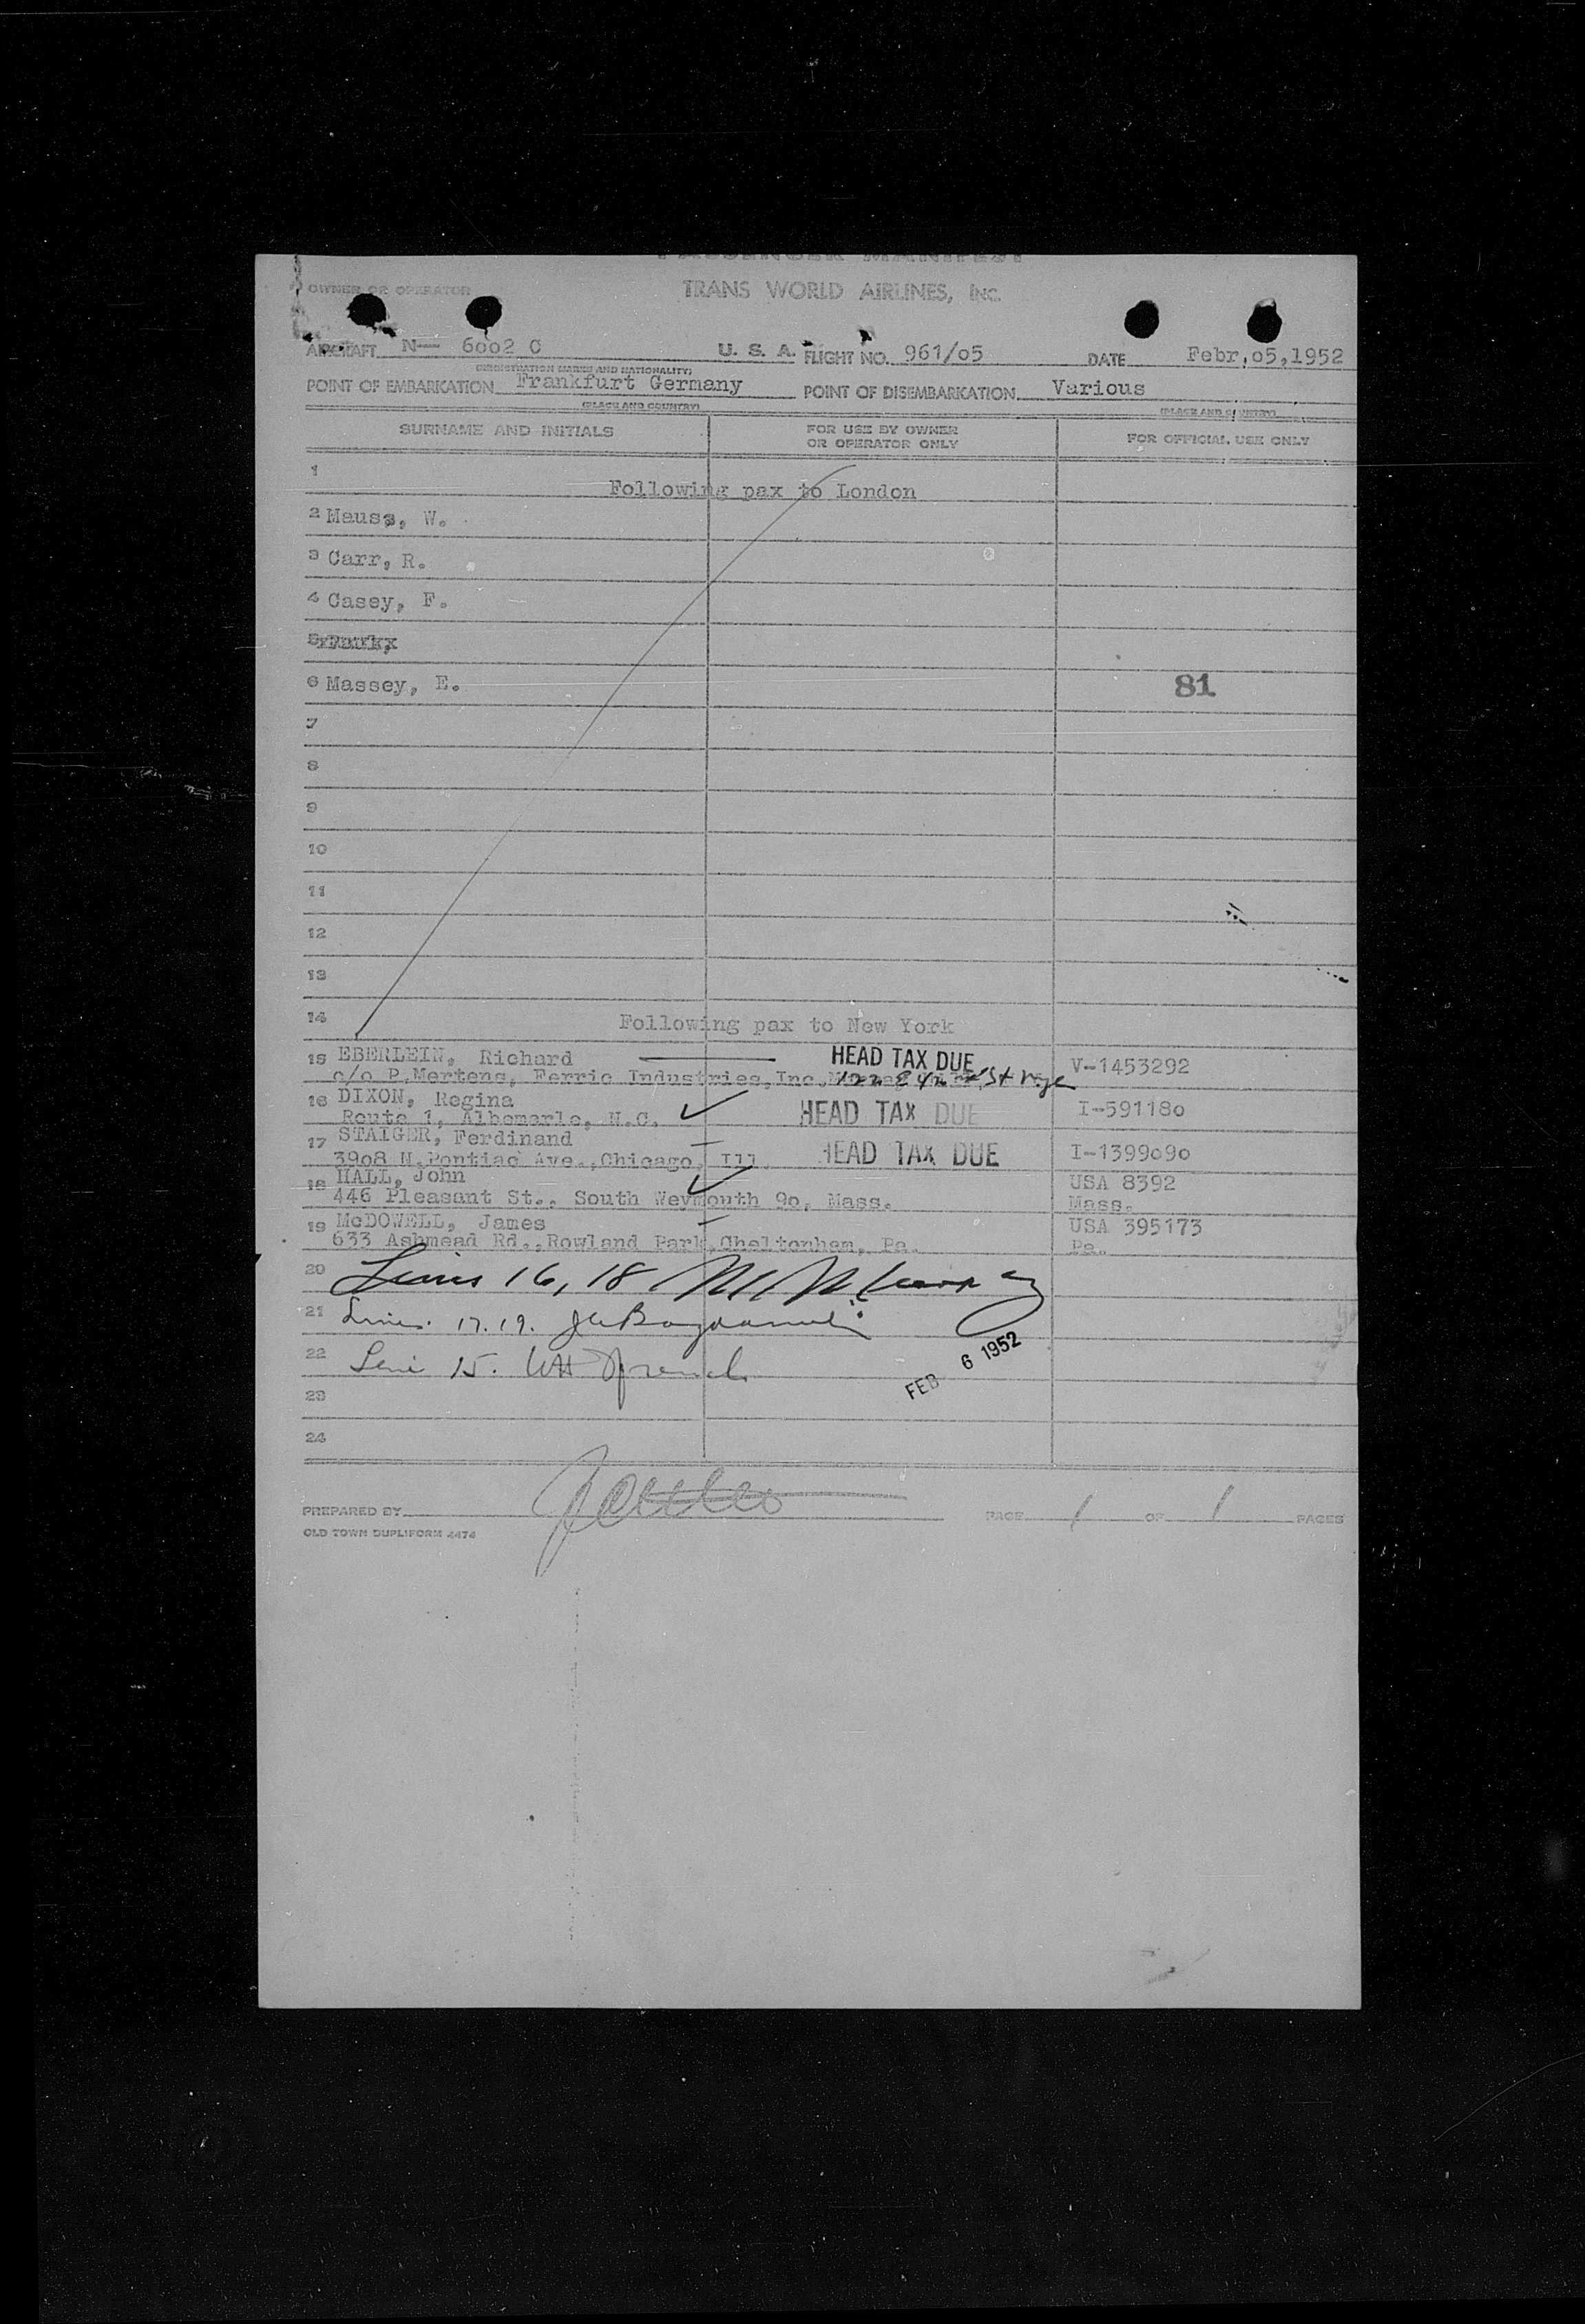 PASSENGER MANIFEST
OWNER OR OPERATOR TRANS WORLD AIRLINES, INC.
AIRCRAFT N— 6002 C U. S. A. FLIGHT NO. 961/05 DATE Febr,05,1952
(REGISTRATION MARKS AND NATIONALITY)
POINT OF EMBARKATION Frankfurt Germany POINT OF DISEMBARKATION Various
(PLACE AND COUNTRY) (PLACE AND COUNTRY)
SURNAME AND INITIALS FOR USE BY OWNER OR OPERATOR ONLY FOR OFFICIAL USE ONLY
1 Following pax to London
2 Mauss, W.
3 Carr, R.
4 Casey, F.
5
6 Massey, E. 81
7
8
9
10
11
12
13
14 Following pax to New York
15 EBERLEIN, Richard HEAD TAX DUE V-1453292
c/o P.Mertens, Ferric Industries,Inc. 122 E 42 St
16 DIXON, Regina HEAD TAX DUE I-591180
Route 1, Albemarle, N.C.
17 STAIGER, Ferdinand HEAD TAX DUE I-1399090
3908 N.Pontiac Ave.,Chicago, Ill.
18 HALL, John USA 8392
446 Pleasant St., South Weymouth 90, Mass. Mass.
19 McDOWELL, James USA 395173
633 Ashmead Rd.,Rowland Park,Cheltenham, Pa. Pa.
20 Lines 16, 18
21 Lines 17.19.
22 Line 15.
FEB 6 1952
23
24
PREPARED BY PAGE 1 OF 1 PAGES
OLD TOWN DUPLIFORM 4474